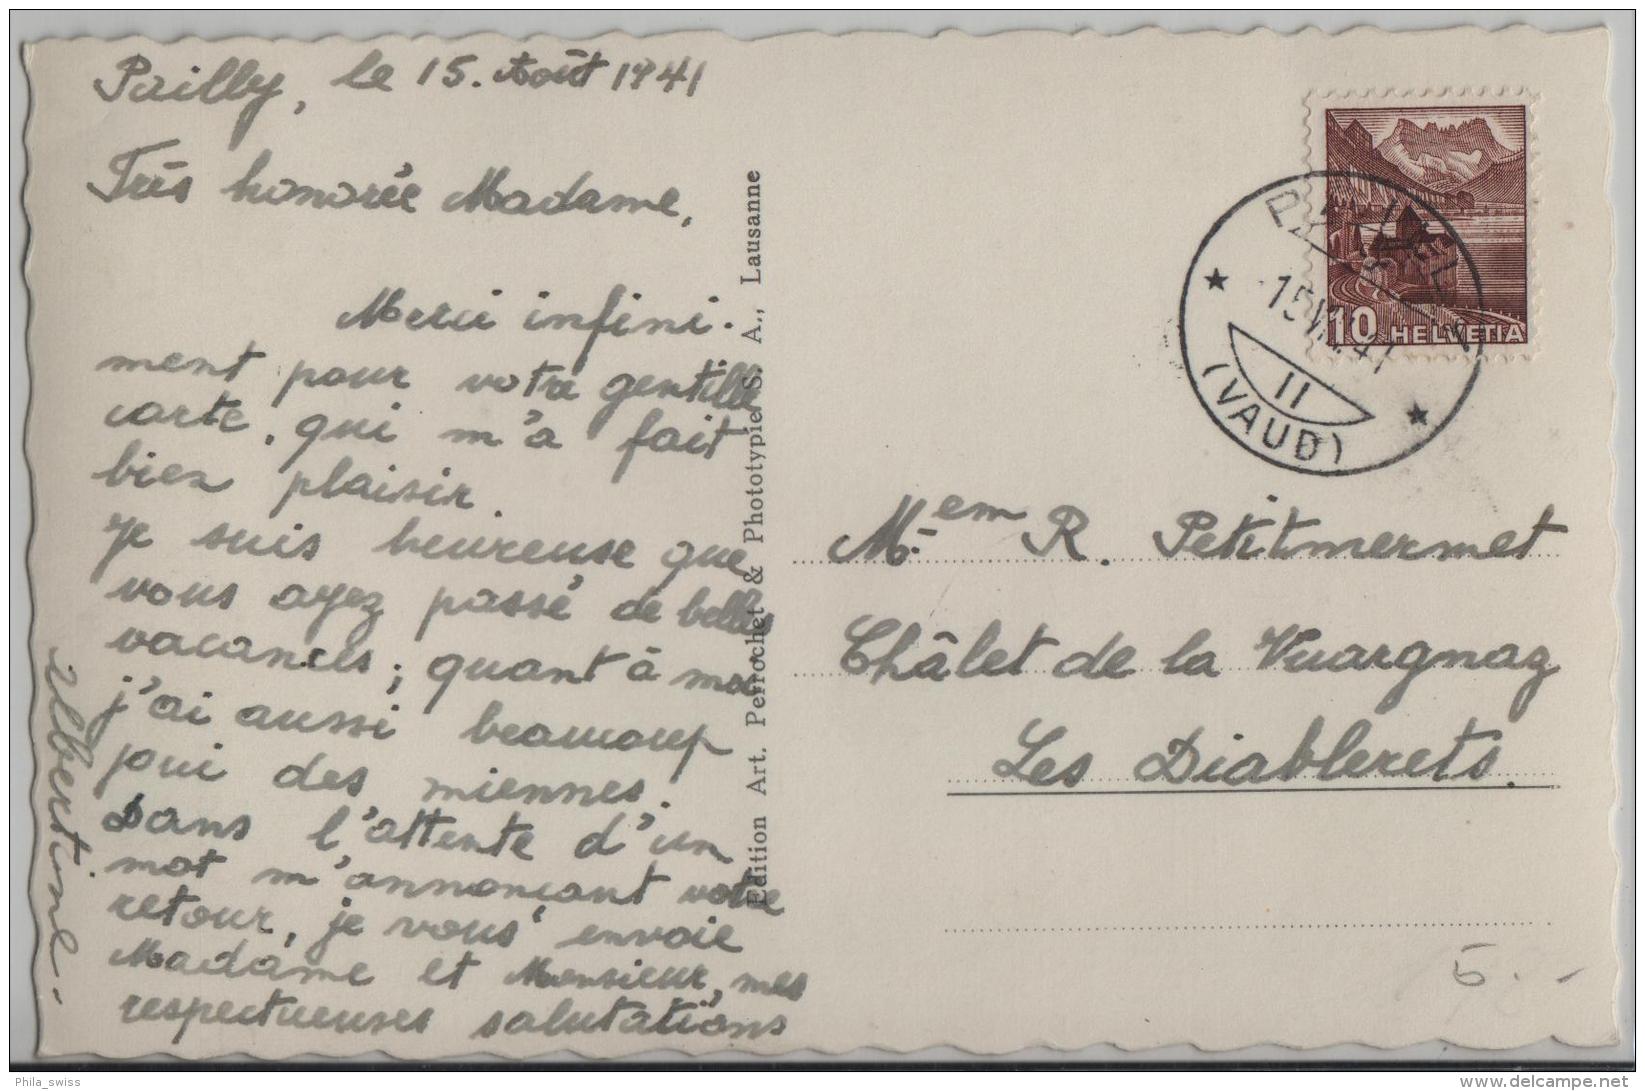 Pailly, le 15. Août 1941
Très honorée Madame,
Merci infini-
ment pour votre gentille
carte, qui m'a fait
bien plaisir.
Je suis heureuse que
vous ayez passé de belles
vacances; quant à moi
j'ai aussi beaucoup
joui des miennes.
Dans l'attente d'un
mot m'annonçant votre
retour, je vous envoie
Madame et Monsieur, mes
respectueuses salutations
Albertine.
Edition Art. Perrochet & Phototypie S. A., Lausanne
10 HELVETIA
PAILLY
15 VIII 41
II
(VAUD)
M.em R. Petitmermet
Châlet de la Vuargnaz
Les Diablerets.
5.-
Phila_swiss
www.delcampe.net